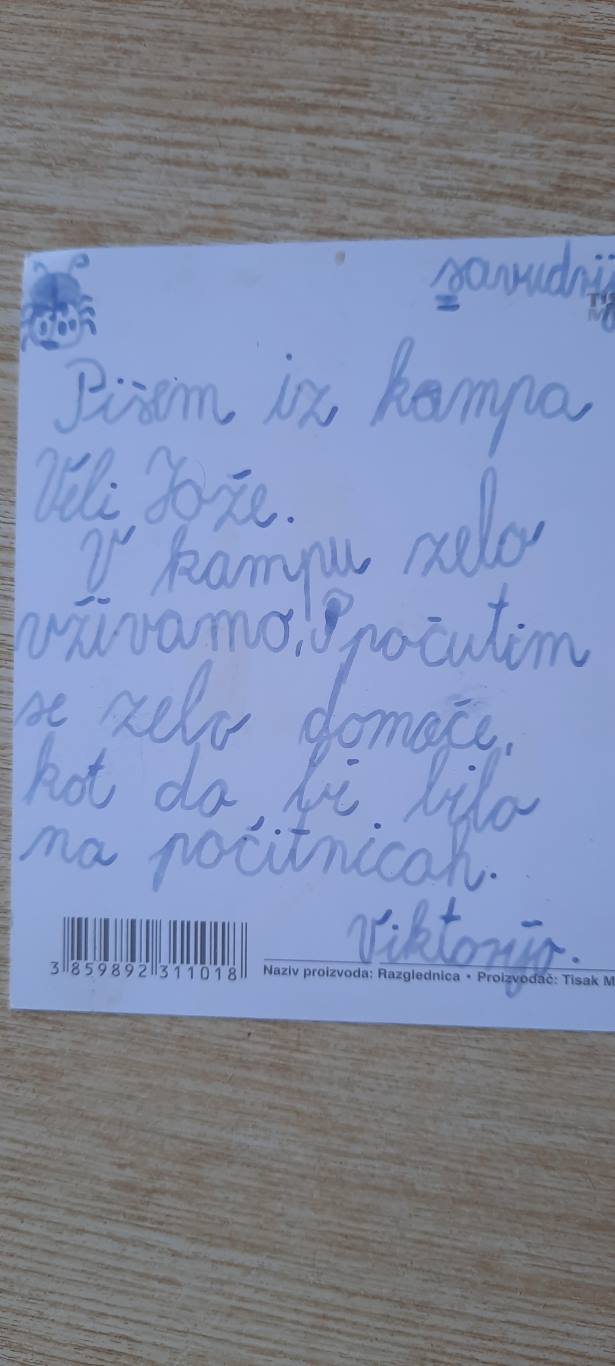 savudrij
Pišem iz kampa
Veli Jože.
V kampu zelo
vživamo, počutim
se zelo domače,
kot da bi bila
na počitnicah.
Viktorija.
3 859892 311018
Naziv proizvoda: Razglednica • Proizvođač: Tisak M